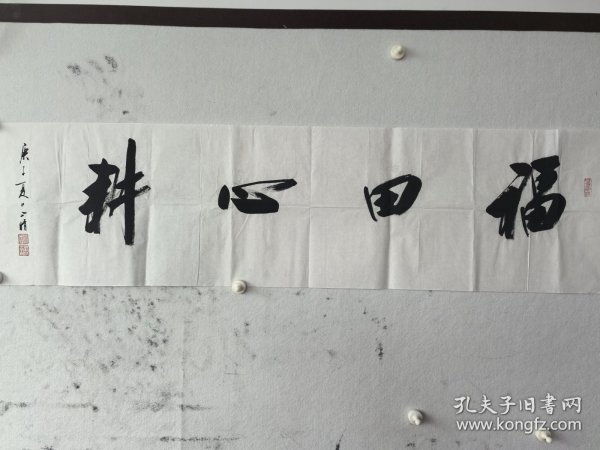 福田心耕
庚子夏日
孔夫子旧书网
www.kongfz.com